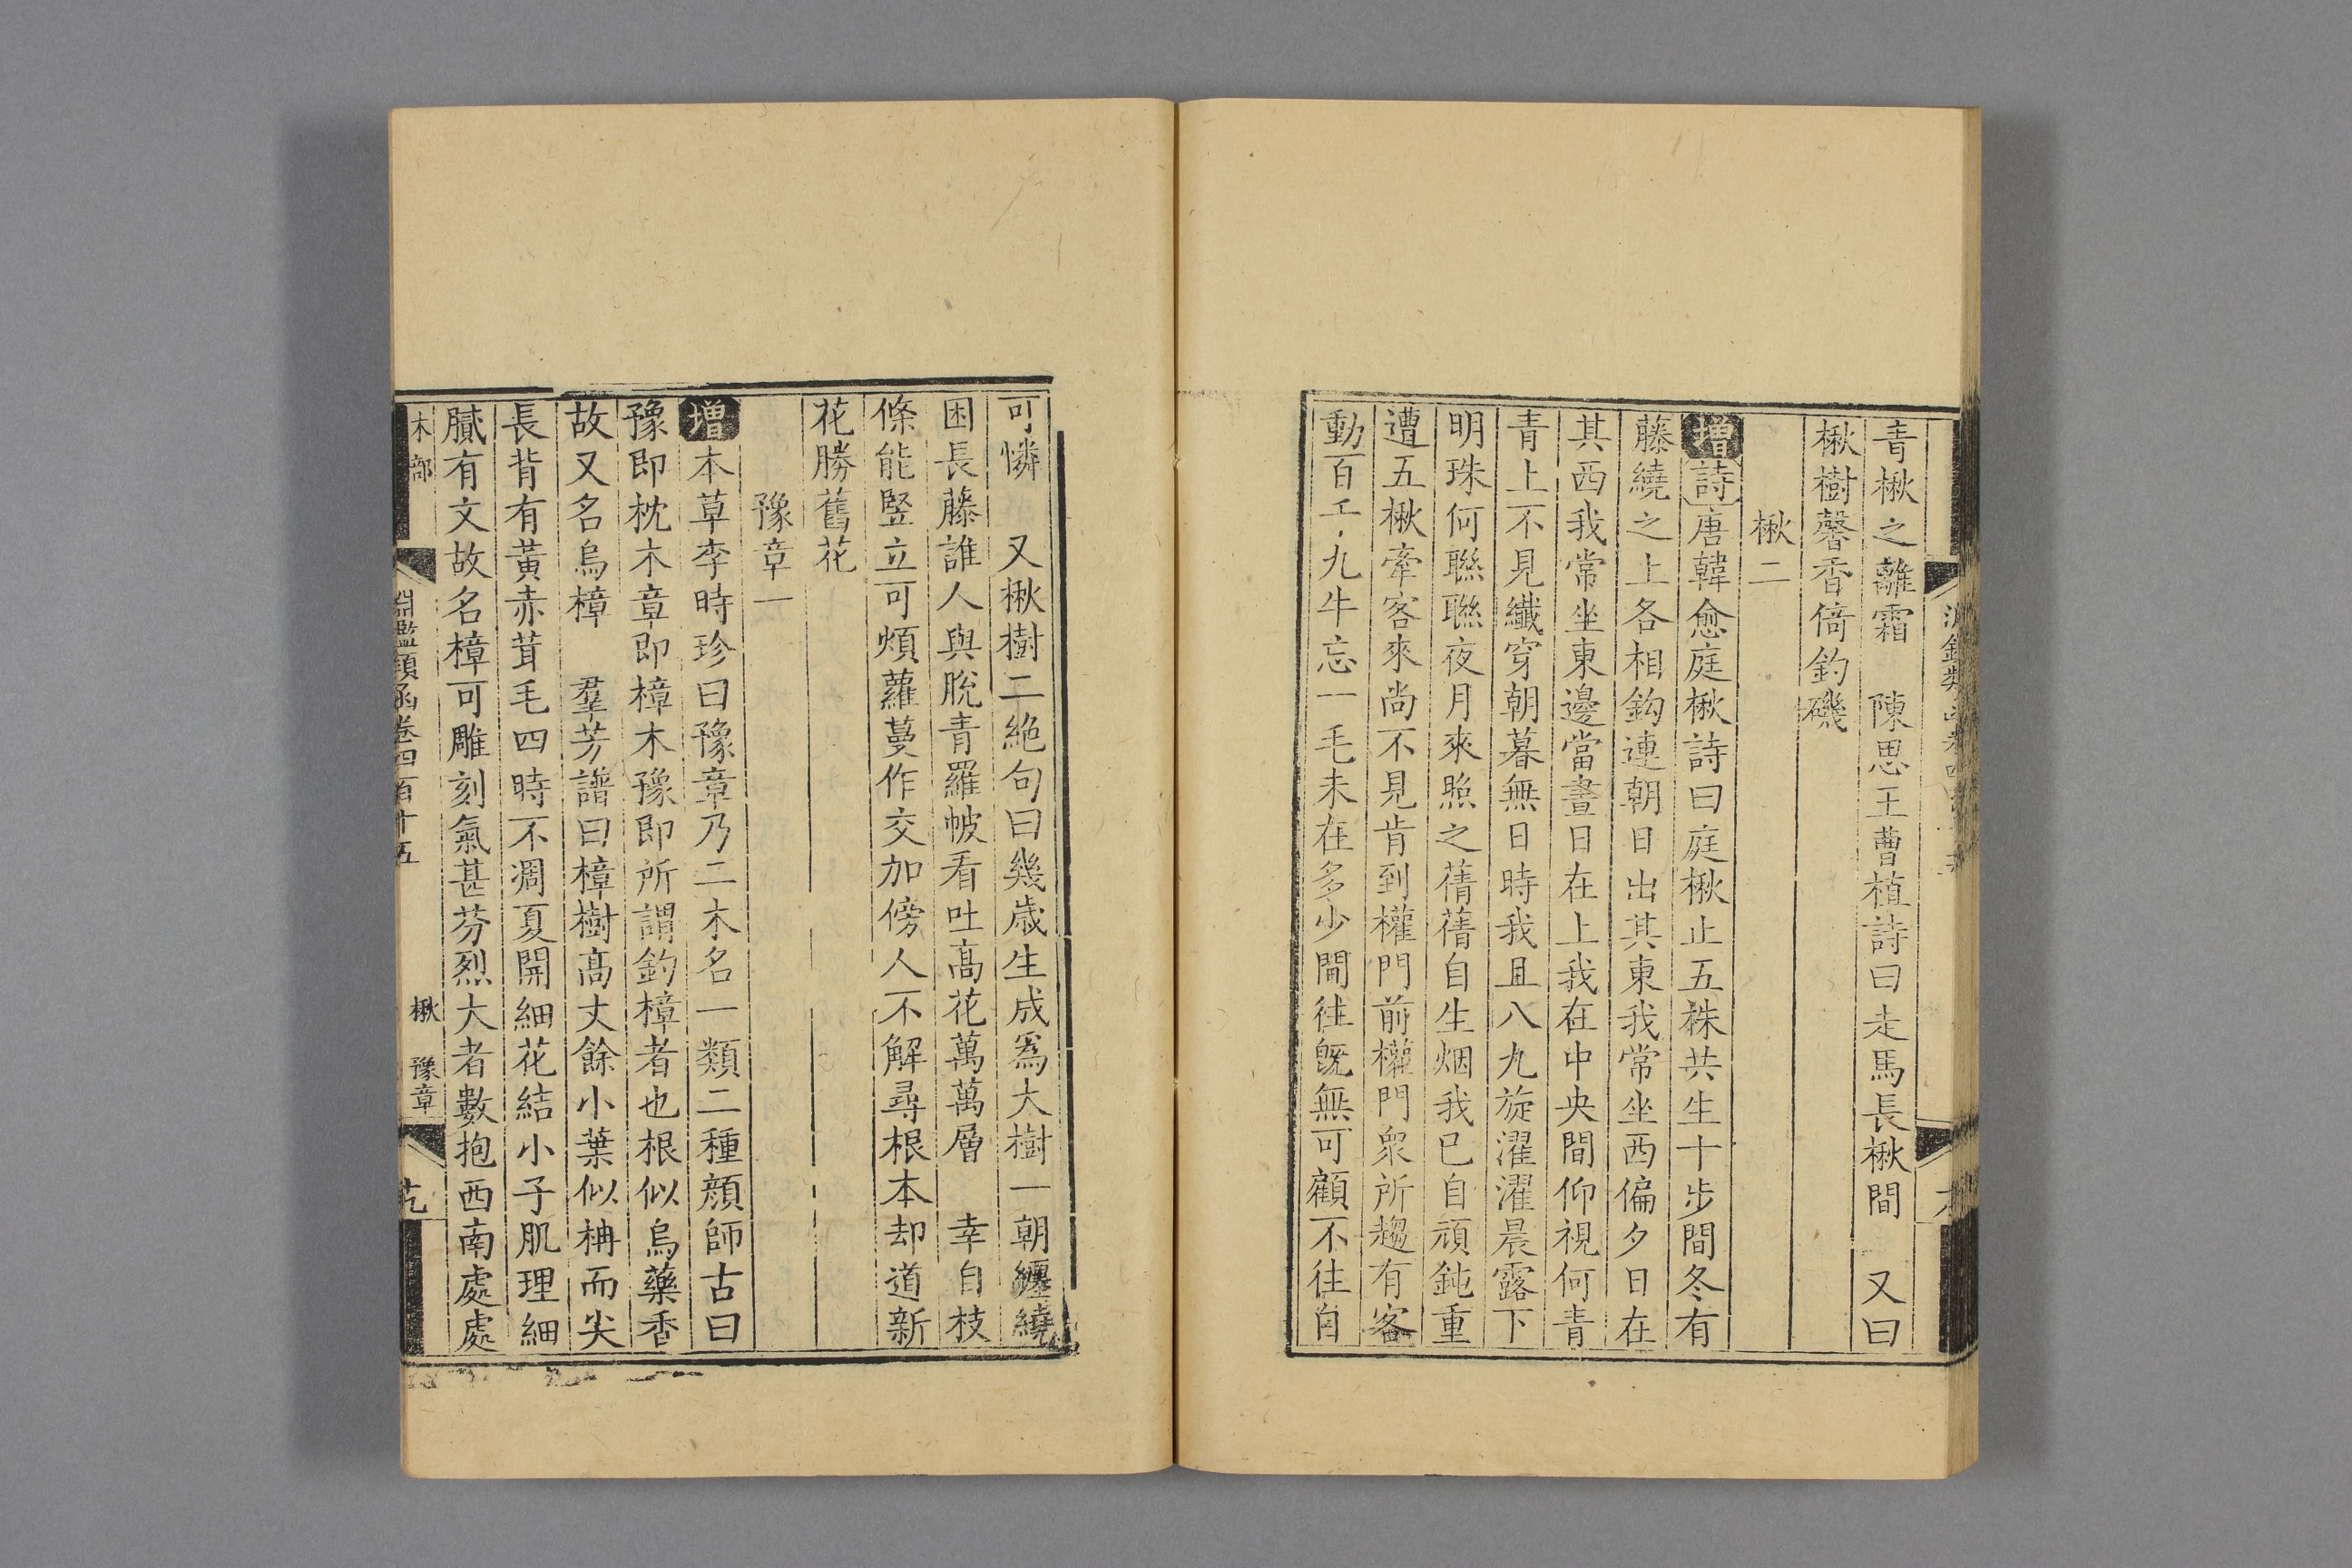 青楸之離霜　陳思王曹植詩曰走馬長楸間　又曰
楸樹馨香倚釣磯
楸二
增詩唐韓愈庭楸詩曰庭楸止五株共生十步間冬有
藤繞之上各相鈎連朝日出其東我常坐西偏夕日在
其西我常坐東邊當晝日在上我在中央間仰視何青
青上不見纖穿朝暮無日時我且八九旋濯濯晨露下
明珠何聯聯夜月來照之蒨蒨自生烟我已自頑鈍重
遭五楸牽客來尚不見肯到權門前權門衆所趨有客
動百工九牛忘一毛未在多少間往旣無可顧不往自
可憐　又楸樹二絶句曰幾歳生成爲大樹一朝纏繞
困長藤誰人與脫青羅帔看吐高花萬萬層　幸自枝
條能竪立可煩蘿蔓作交加傍人不解尋根本却道新
花勝舊花
豫章一
增本草李時珍曰豫章乃二木名一類二種顔師古曰
豫即枕木章即樟木豫即所謂釣樟者也根似烏藥香
故又名烏樟　羣芳譜曰樟樹高丈餘小葉似枏而尖
長背有黃赤茸毛四時不凋夏開細花結小子肌理細
膩有文故名樟可雕刻氣甚芬烈大者數抱西南處處
木部
淵鑑類函卷四百十五
楸　豫章